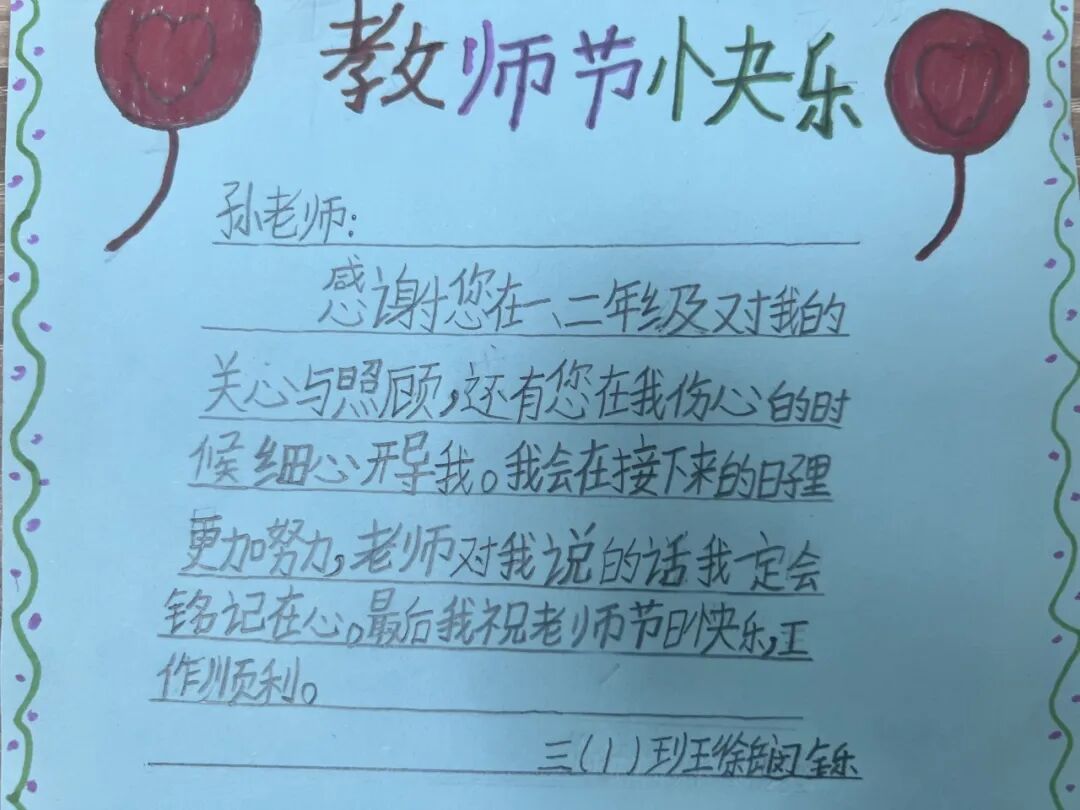 教师节快乐
孙老师:
感谢您在一、二年级对我的
关心与照顾,还有您在我伤心的时
候细心开导我。我会在接下来的日子里
更加努力,老师对我说的话我一定会
铭记在心。最后我祝老师节日快乐,工
作顺利。
三(1)班王徐